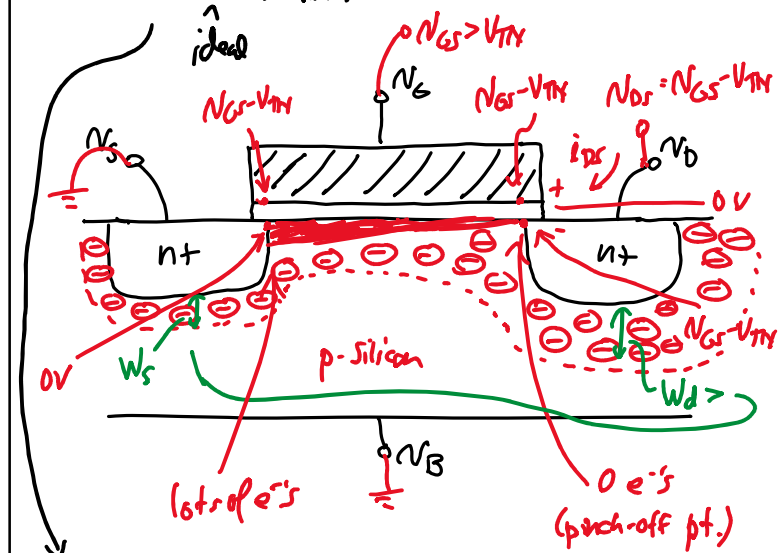 ideal
v_GS > V_TN
v_G
v_GS - V_TN
v_GS - V_TN
v_DS = v_GS - V_TN
v_S
i_DS
v_D
+
0V
-
n+
n+
v_GS - V_TN
W_s
0V
p-silicon
W_d >
v_B
lots of e⁻'s
0 e⁻'s
(pinch-off pt.)